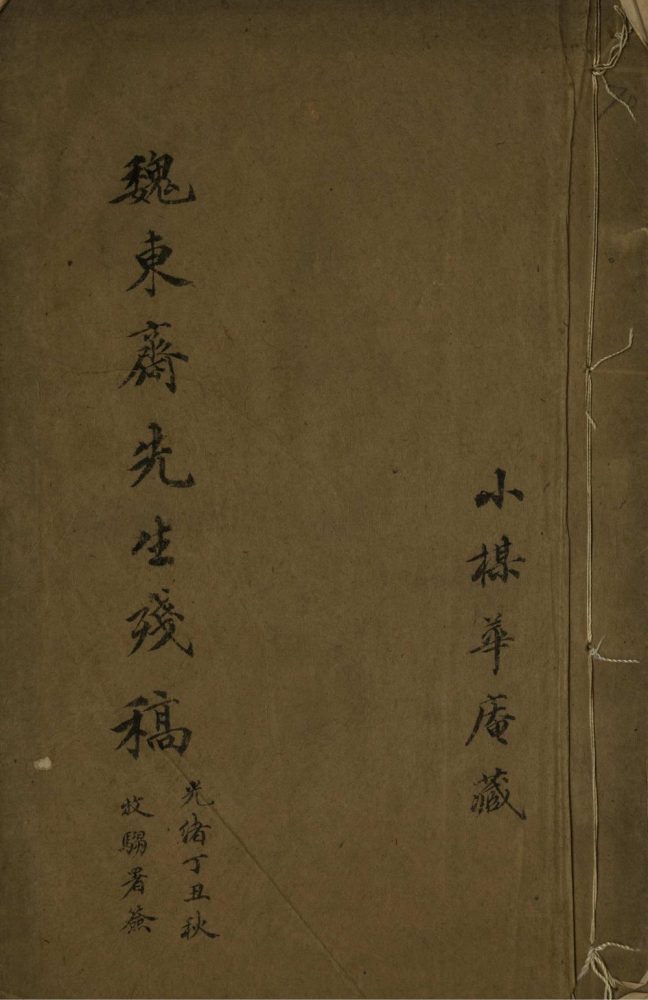 小楳華庵藏
魏東齋先生殘稿
光緒丁丑秋
牧騶署簽